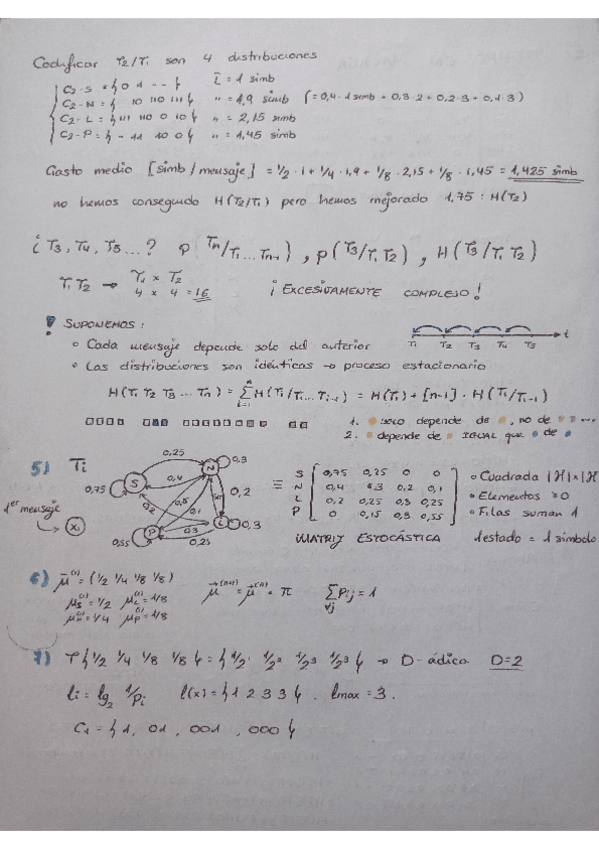 Codificar T2/T1 son 4 distribuciones
C2-S = { 0 1 - - } L̄ = 1 simb
C2-N = { 10 110 111 } " = 1,9 simb (= 0,4·1 simb + 0,3·2 + 0,2·3 + 0,1·3)
C2-L = { 111 110 0 10 } " = 2,15 simb
C2-P = { - 11 10 0 } " = 1,45 simb
Gasto medio [simb/mensaje] = 1/2 · 1 + 1/4 · 1,9 + 1/8 · 2,15 + 1/8 · 1,45 = 1,425 simb
no hemos conseguido H(T2/T1) pero hemos mejorado 1,75 : H(T2)
¿ T3, T4, T5 ... ? p(Tn/T1 ... Tn-1), p(T3/T1 T2), H(T3/T1 T2)
T1 T2 → T1 x T2
4 x 4 = 16 ¡ EXCESIVAMENTE COMPLEJO !
! SUPONEMOS :
◦ Cada mensaje depende solo del anterior
T1 T2 T3 T4 T5 t
◦ Las distribuciones son idénticas → proceso estacionario
H(T1 T2 T3 ... Tn) = Σ H(Ti/T1 ... Ti-1) = H(T1) + [n-1] · H(Ti/Ti-1)
1. solo depende de , no de ...
2. depende de IGUAL que de
5) Ti
S N L P
0,25 0,3 0,4 0,75 0,2 0,5 0,1 0,2 0,3 0,3 0,55 0,25
1er mensaje
X1
≡
S [ 0,75 0,25 0 0 ]
N [ 0,4 0,3 0,2 0,1 ]
L [ 0,2 0,25 0,3 0,25 ]
P [ 0 0,15 0,3 0,55 ]
◦ Cuadrada |X|x|X|
◦ Elementos ≥0
◦ Filas suman 1
MATRIZ ESTOCÁSTICA 1 estado = 1 símbolo
6) μ̄(1) = (1/2 1/4 1/8 1/8) μ̄(n+1) = μ̄(n) · π Σ Pij = 1
∀j
μS(1) = 1/2 μL(1) = 1/8
μN(1) = 1/4 μP(1) = 1/8
7) T { 1/2 1/4 1/8 1/8 } = { 1/2¹ 1/2² 1/2³ 1/2³ } → D-ádica D=2
li = lg2 1/pi l(x) = { 1 2 3 3 } . lmax = 3.
C1 = { 1, 01, 001, 000 }